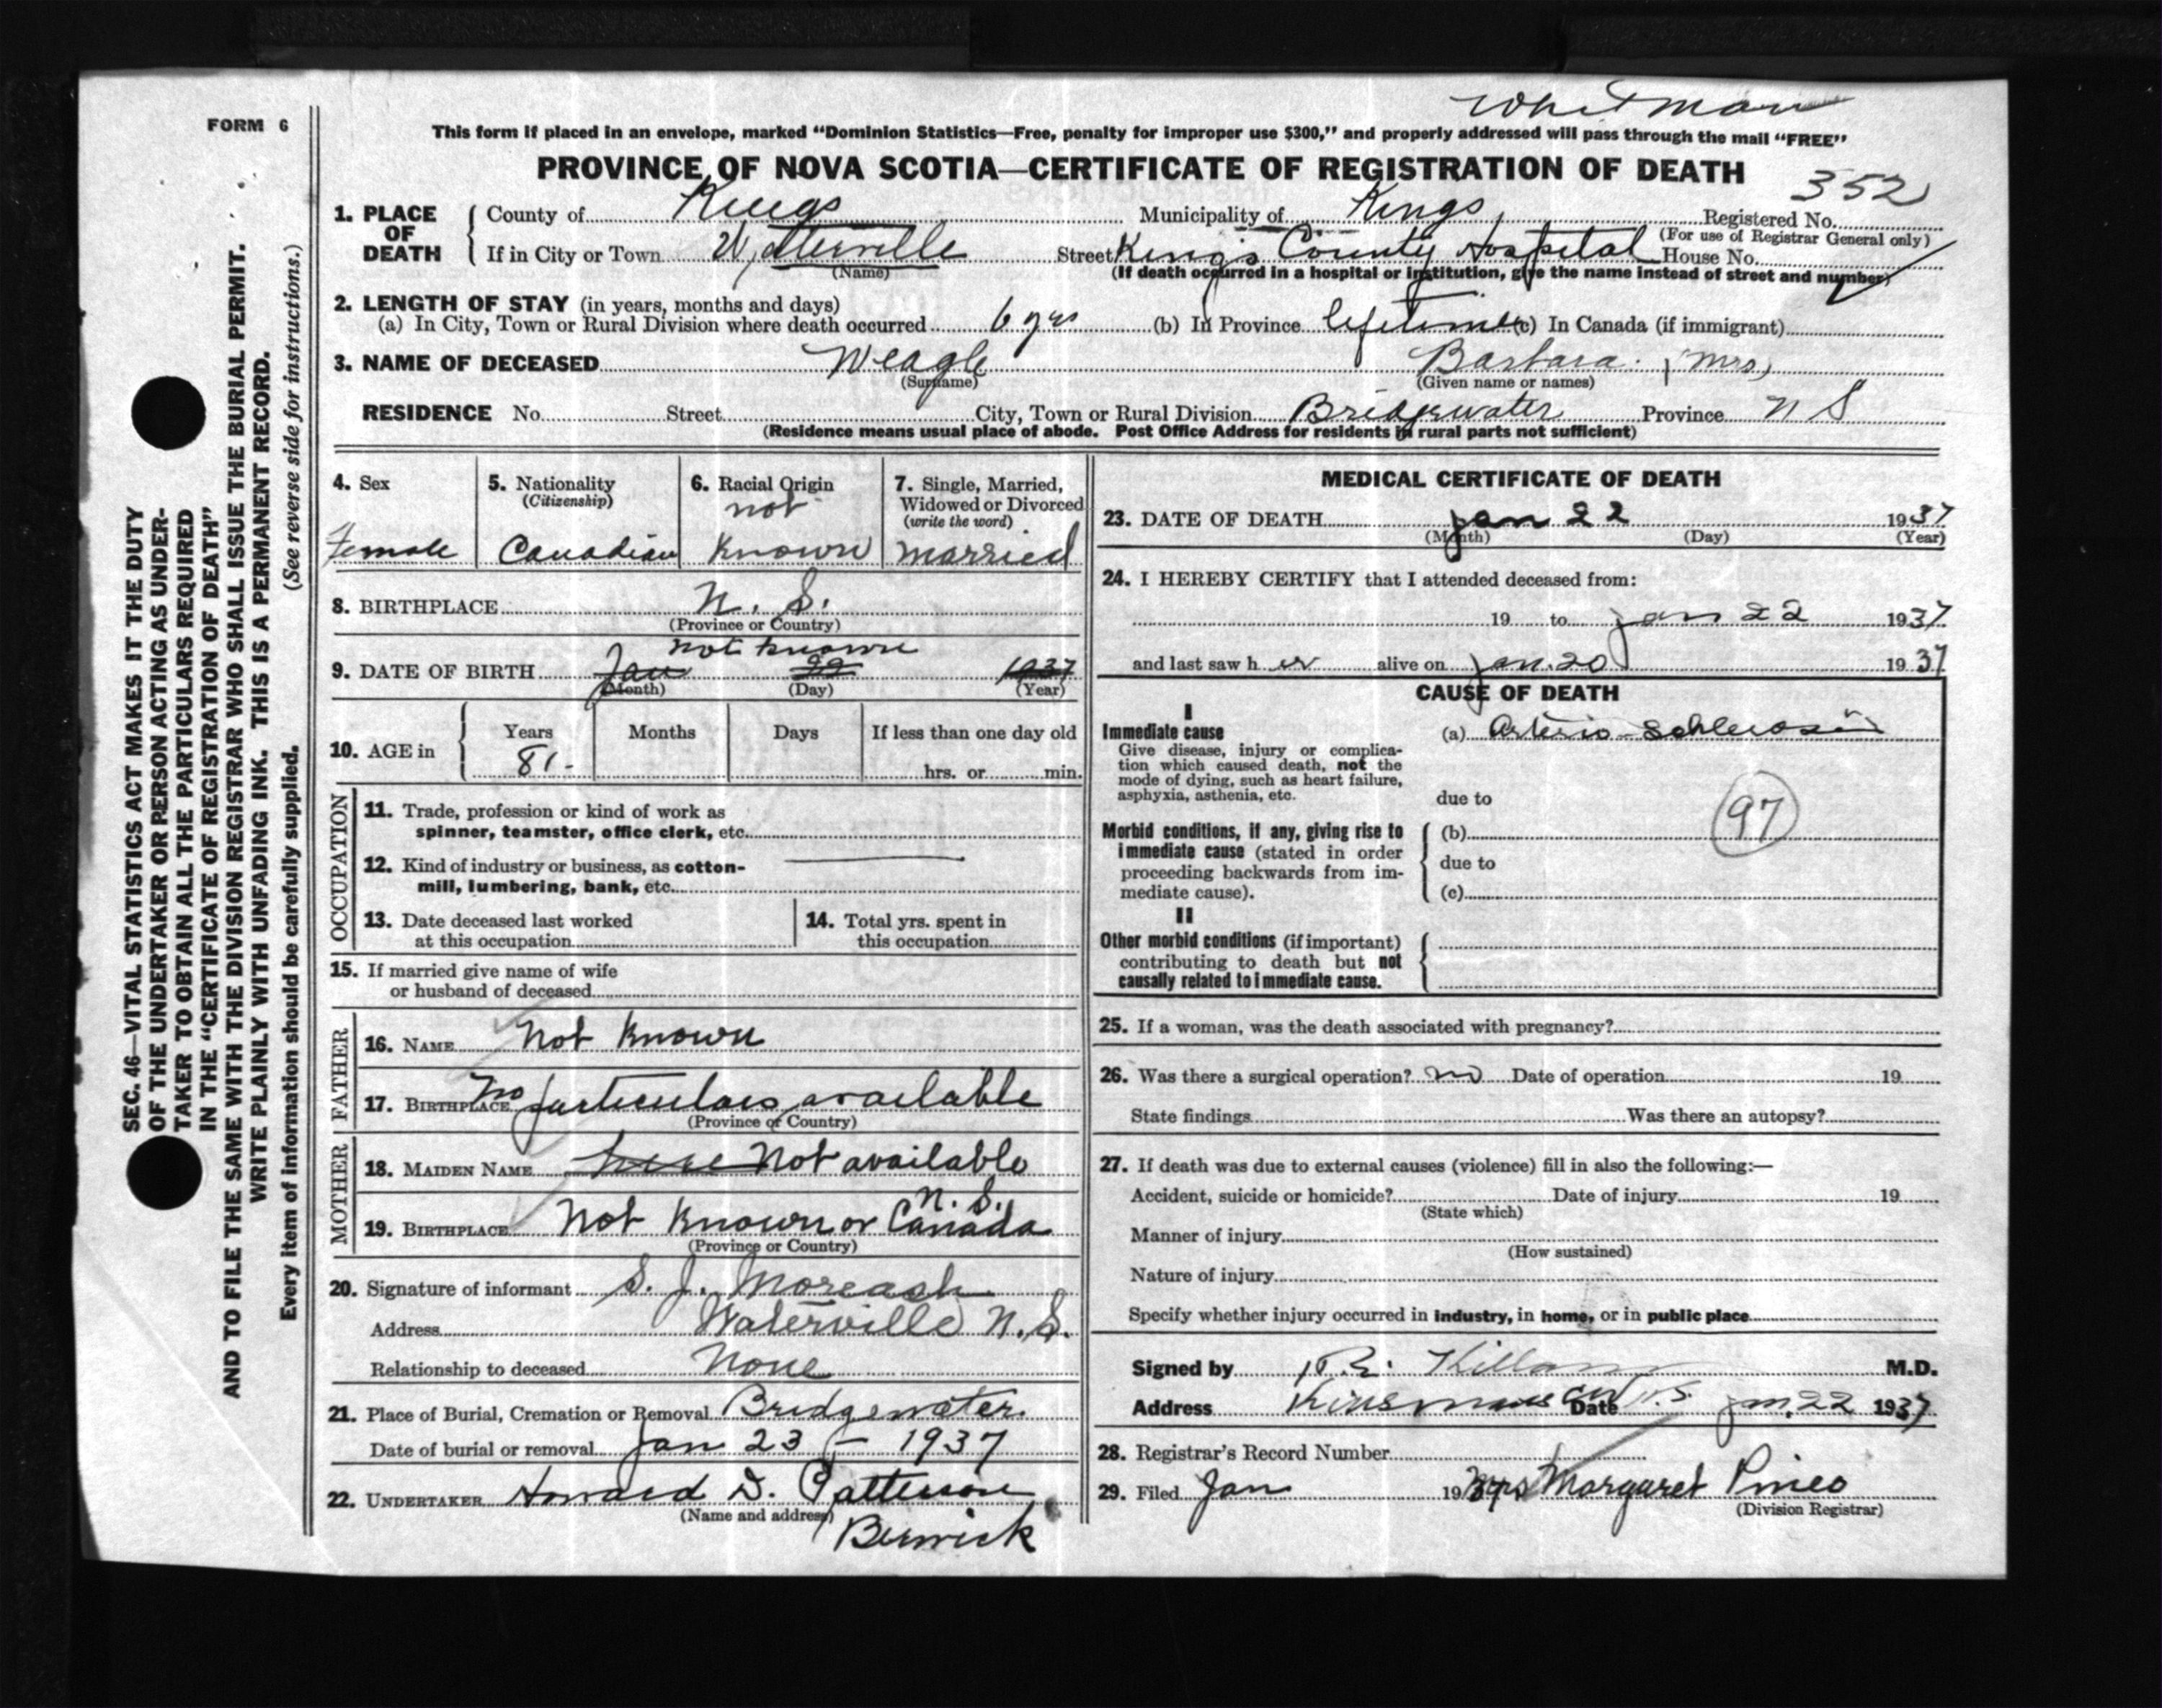 Whitman
FORM 6
This form if placed in an envelope, marked “Dominion Statistics—Free, penalty for improper use $300,” and properly addressed will pass through the mail “FREE”
PROVINCE OF NOVA SCOTIA—CERTIFICATE OF REGISTRATION OF DEATH
352
1. PLACE OF DEATH
County of Kings Municipality of Kings Registered No.
(For use of Registrar General only)
If in City or Town Waterville Street King's County Hospital House No.
(Name) (If death occurred in a hospital or institution, give the name instead of street and number)
2. LENGTH OF STAY (in years, months and days)
(a) In City, Town or Rural Division where death occurred 6 yrs (b) In Province lifetime (c) In Canada (if immigrant)
3. NAME OF DECEASED Weagle Barbara (Mrs)
(Surname) (Given name or names)
RESIDENCE No. Street City, Town or Rural Division Bridgewater Province N S
(Residence means usual place of abode. Post Office Address for residents in rural parts not sufficient)
4. Sex
Female
5. Nationality
(Citizenship)
Canadian
6. Racial Origin
not
known
7. Single, Married,
Widowed or Divorced
(write the word)
married
8. BIRTHPLACE N. S.
(Province or Country)
not known
9. DATE OF BIRTH Jan 22 1937
(Month) (Day) (Year)
10. AGE in
Years Months Days If less than one day old
81- hrs. or min.
OCCUPATION
11. Trade, profession or kind of work as
spinner, teamster, office clerk, etc.
12. Kind of industry or business, as cotton-
mill, lumbering, bank, etc.
13. Date deceased last worked
at this occupation
14. Total yrs. spent in
this occupation
15. If married give name of wife
or husband of deceased
FATHER
16. NAME Not Known
17. BIRTHPLACE No particulars available
(Province or Country)
MOTHER
18. MAIDEN NAME Not available
N. S.
19. BIRTHPLACE Not Known or Canada
(Province or Country)
20. Signature of informant S. J. Moreash
Address Waterville N.S.
Relationship to deceased None
21. Place of Burial, Cremation or Removal Bridgewater
Date of burial or removal Jan 23 - 1937
22. UNDERTAKER Howard D. Patterson
(Name and address)
Berwick
MEDICAL CERTIFICATE OF DEATH
23. DATE OF DEATH Jan 22 1937
(Month) (Day) (Year)
24. I HEREBY CERTIFY that I attended deceased from:
19 to Jan 22 1937
and last saw h er alive on Jan. 20 1937
CAUSE OF DEATH
I
Immediate cause
Give disease, injury or complica-
tion which caused death, not the
mode of dying, such as heart failure,
asphyxia, asthenia, etc.
(a) Arterio-Schlerosis
due to
97
Morbid conditions, if any, giving rise to
immediate cause (stated in order
proceeding backwards from im-
mediate cause).
(b)
due to
(c)
II
Other morbid conditions (if important)
contributing to death but not
causally related to immediate cause.
25. If a woman, was the death associated with pregnancy?
26. Was there a surgical operation? no Date of operation 19
State findings Was there an autopsy?
27. If death was due to external causes (violence) fill in also the following:—
Accident, suicide or homicide? Date of injury 19
(State which)
Manner of injury
(How sustained)
Nature of injury
Specify whether injury occurred in industry, in home, or in public place
Signed by Killam M.D.
Address N.S. Date Jan. 22 1937
28. Registrar's Record Number
29. Filed Jan 1937 Mrs Margaret Pineo
(Division Registrar)
SEC. 46—VITAL STATISTICS ACT MAKES IT THE DUTY
OF THE UNDERTAKER OR PERSON ACTING AS UNDER-
TAKER TO OBTAIN ALL THE PARTICULARS REQUIRED
IN THE “CERTIFICATE OF REGISTRATION OF DEATH”
AND TO FILE THE SAME WITH THE DIVISION REGISTRAR WHO SHALL ISSUE THE BURIAL PERMIT.
WRITE PLAINLY WITH UNFADING INK. THIS IS A PERMANENT RECORD.
Every item of information should be carefully supplied. (See reverse side for instructions.)